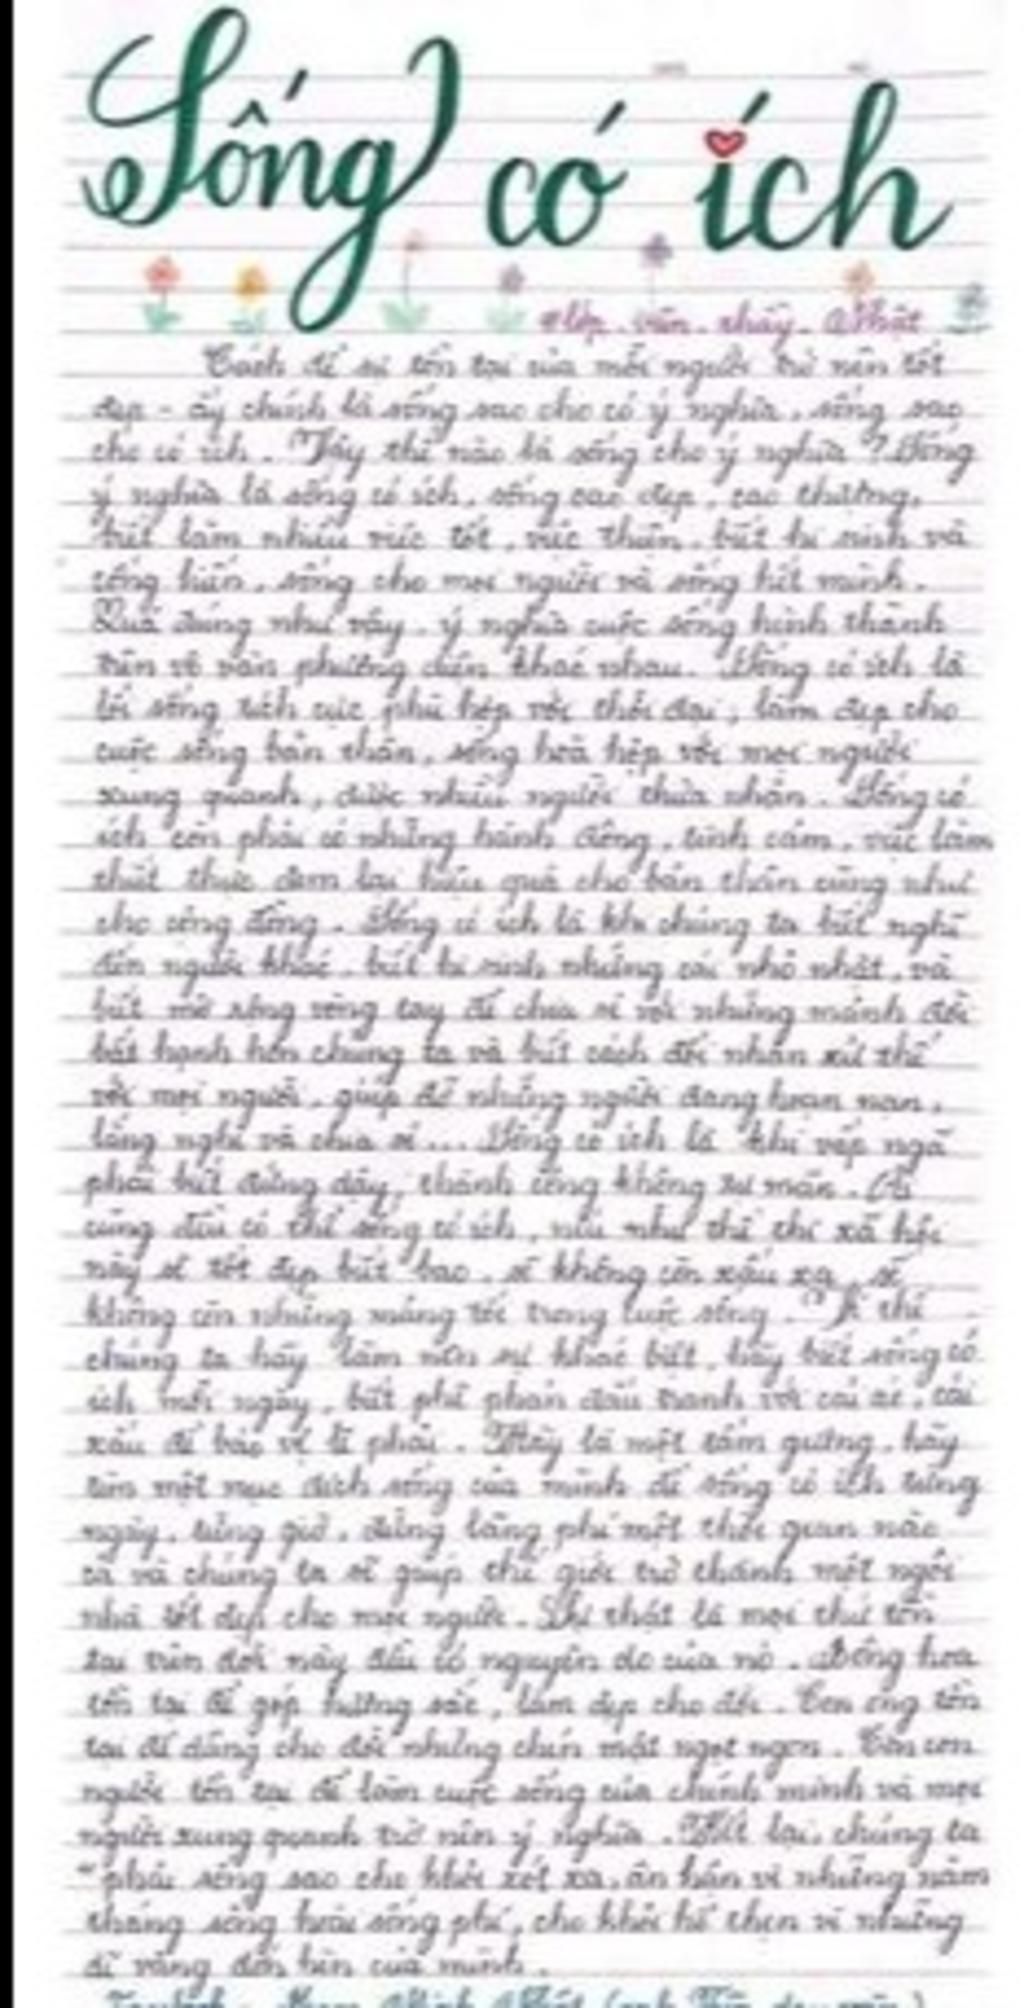 Sống có ích
#lớp văn thầy Nhật
Cách để sự tồn tại của mỗi người trở nên tốt
đẹp - ấy chính là sống sao cho có ý nghĩa, sống sao
cho có ích. Vậy thế nào là sống cho ý nghĩa? Sống
ý nghĩa là sống có ích, sống cao đẹp, cao thượng,
biết làm nhiều việc tốt, việc thiện, biết hi sinh và
cống hiến, sống cho mọi người và sống hết mình.
Quả đúng như vậy, ý nghĩa cuộc sống hình thành
trên vô vàn phương diện khác nhau. Sống có ích là
lối sống tích cực phù hợp với thời đại, làm đẹp cho
cuộc sống bản thân, sống hoà hợp với mọi người
xung quanh, được nhiều người thừa nhận. Sống có
ích còn phải có những hành động, tình cảm, việc làm
thiết thực đem lại hiệu quả cho bản thân cũng như
cho cộng đồng. Sống có ích là khi chúng ta biết nghĩ
đến người khác, biết hi sinh những cái nhỏ nhặt, và
biết mở rộng vòng tay để chia sẻ với những mảnh đời
bất hạnh hơn chúng ta và biết cách đối nhân xử thế
với mọi người, giúp đỡ những người đang hoạn nạn,
lắng nghe và chia sẻ... Sống có ích là khi vấp ngã
phải biết đứng dậy, thành công không tự mãn. Ai
cũng đều có thể sống có ích, nếu như thế thì xã hội
này sẽ tốt đẹp biết bao, sẽ không còn xấu xa, sẽ
không còn những mảng tối trong cuộc sống. Vì thế
chúng ta hãy làm nên sự khác biệt, hãy biết sống có
ích mỗi ngày, biết phê phán đấu tranh với cái ác, cái
xấu để bảo vệ lẽ phải. Hãy là một tấm gương, hãy
tìm một mục đích sống của mình để sống có ích từng
ngày, từng giờ, đừng lãng phí một thời gian nào
cả và chúng ta sẽ giúp thế giới trở thành một ngôi
nhà tốt đẹp cho mọi người. Sự thật là mọi thứ tồn
tại trên đời này đều có nguyên do của nó. Bông hoa
tồn tại để góp hương sắc, làm đẹp cho đời. Con ong tồn
tại để dâng cho đời những chén mật ngọt ngon. Còn con
người tồn tại để làm cuộc sống của chính mình và mọi
người xung quanh trở nên ý nghĩa. Kết lại, chúng ta
"phải sống sao cho khỏi xót xa, ân hận vì những năm
tháng sống hoài sống phí, cho khỏi hổ thẹn vì những
dĩ vãng đớn hèn của mình.